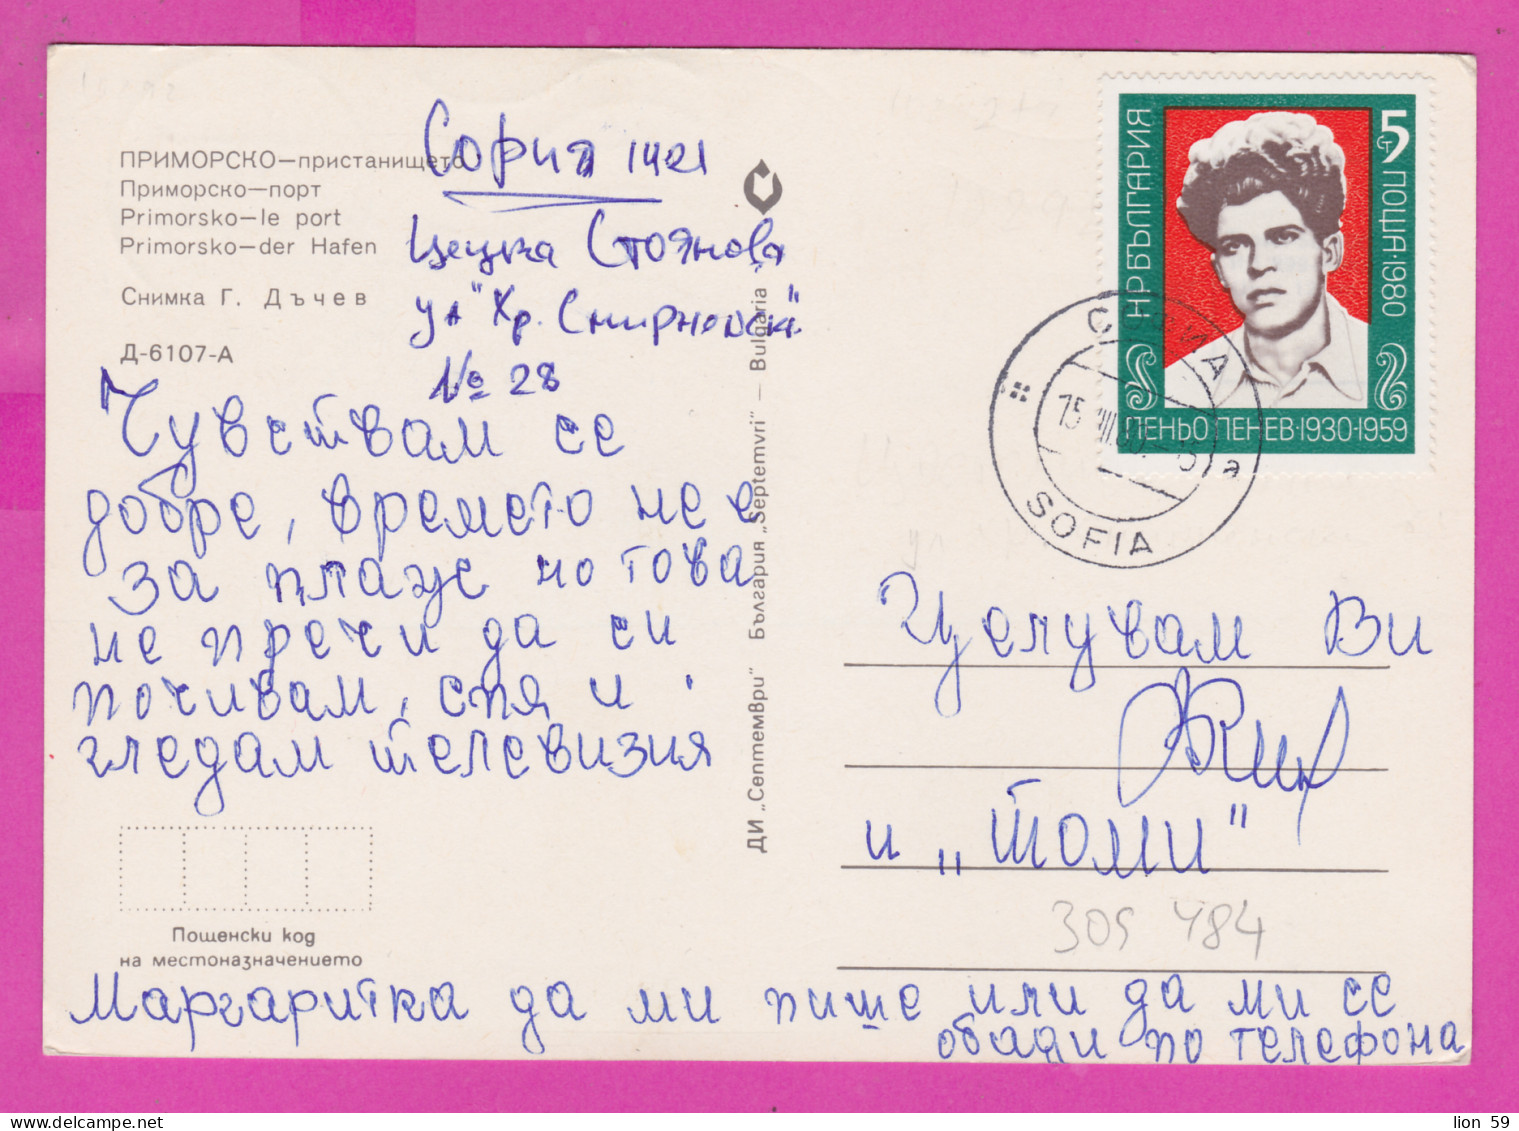 ПРИМОРСКО—пристанището
Приморско—порт
Primorsko—le port
Primorsko—der Hafen
Снимка Г. Дъчев
Д-6107-А
София 1421
Цецка Стоянова
ул "Хр. Смирненски"
№ 28
Чувствам се
добре, времето не е
за плаж но това
не пречи да си
почивам, спя и
гледам телевизия
Пощенски код
на местоназначението
ДИ „Септември" България „Septemvri" — Bulgaria
НР БЪЛГАРИЯ
5 ст ПОЩА·1980
ПЕНЬО ПЕНЕВ·1930·1959
СОФИЯ
15
SOFIA
Целувам Ви
и „Томи"
305 484
Маргаритка да ми пише или да ми се
обади по телефона
lion 59